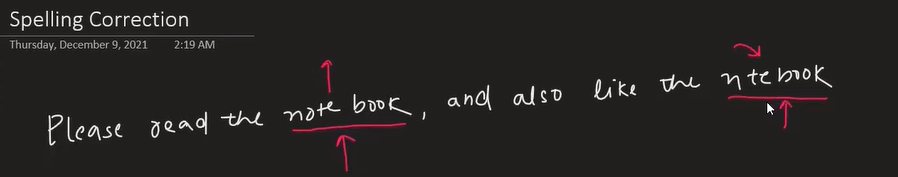 Spelling Correction
Thursday, December 9, 2021 2:19 AM
Please read the note book, and also like the ntebook